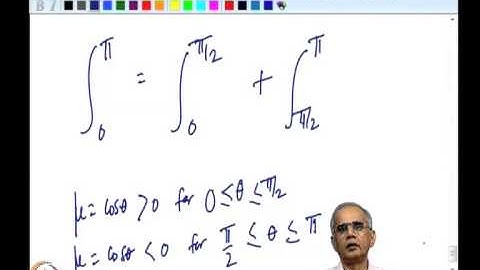 ∫₀^π = ∫₀^π/2 + ∫π/2^π
μ = cosθ > 0 for 0 ≤ θ ≤ π/2
μ = cosθ < 0 for π/2 ≤ θ ≤ π